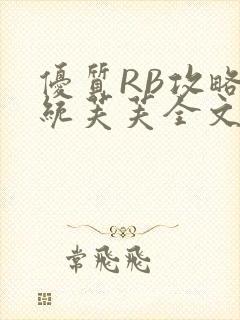 優質RB攻略
統芙芙全文
常飛飛